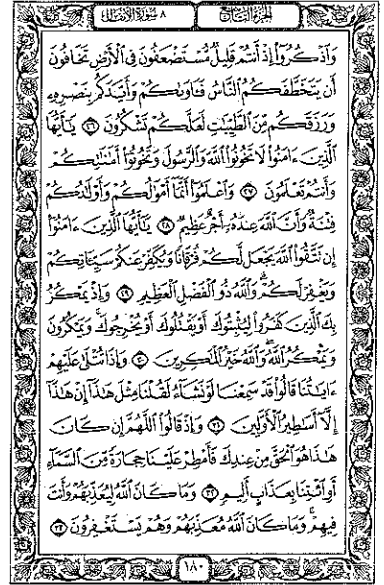 الجزء التاسع ٨ سورة الأنفال
وَٱذْكُرُوٓا۟ إِذْ أَنتُمْ قَلِيلٌ مُّسْتَضْعَفُونَ فِى ٱلْأَرْضِ تَخَافُونَ
أَن يَتَخَطَّفَكُمُ ٱلنَّاسُ فَـَٔاوَىٰكُمْ وَأَيَّدَكُم بِنَصْرِهِۦ
وَرَزَقَكُم مِّنَ ٱلطَّيِّبَـٰتِ لَعَلَّكُمْ تَشْكُرُونَ ٢٦ يَـٰٓأَيُّهَا
ٱلَّذِينَ ءَامَنُوا۟ لَا تَخُونُوا۟ ٱللَّهَ وَٱلرَّسُولَ وَتَخُونُوٓا۟ أَمَـٰنَـٰتِكُمْ
وَأَنتُمْ تَعْلَمُونَ ٢٧ وَٱعْلَمُوٓا۟ أَنَّمَآ أَمْوَٰلُكُمْ وَأَوْلَـٰدُكُمْ
فِتْنَةٌ وَأَنَّ ٱللَّهَ عِندَهُۥٓ أَجْرٌ عَظِيمٌ ٢٨ يَـٰٓأَيُّهَا ٱلَّذِينَ ءَامَنُوٓا۟
إِن تَتَّقُوا۟ ٱللَّهَ يَجْعَل لَّكُمْ فُرْقَانًا وَيُكَفِّرْ عَنكُمْ سَيِّـَٔاتِكُمْ
وَيَغْفِرْ لَكُمْ ۗ وَٱللَّهُ ذُو ٱلْفَضْلِ ٱلْعَظِيمِ ٢٩ وَإِذْ يَمْكُرُ
بِكَ ٱلَّذِينَ كَفَرُوا۟ لِيُثْبِتُوكَ أَوْ يَقْتُلُوكَ أَوْ يُخْرِجُوكَ ۚ وَيَمْكُرُونَ
وَيَمْكُرُ ٱللَّهُ ۖ وَٱللَّهُ خَيْرُ ٱلْمَـٰكِرِينَ ٣٠ وَإِذَا تُتْلَىٰ عَلَيْهِمْ
ءَايَـٰتُنَا قَالُوا۟ قَدْ سَمِعْنَا لَوْ نَشَآءُ لَقُلْنَا مِثْلَ هَـٰذَآ ۙ إِنْ هَـٰذَآ
إِلَّآ أَسَـٰطِيرُ ٱلْأَوَّلِينَ ٣١ وَإِذْ قَالُوا۟ ٱللَّهُمَّ إِن كَانَ
هَـٰذَا هُوَ ٱلْحَقَّ مِنْ عِندِكَ فَأَمْطِرْ عَلَيْنَا حِجَارَةً مِّنَ ٱلسَّمَآءِ
أَوِ ٱئْتِنَا بِعَذَابٍ أَلِيمٍ ٣٢ وَمَا كَانَ ٱللَّهُ لِيُعَذِّبَهُمْ وَأَنتَ
فِيهِمْ ۚ وَمَا كَانَ ٱللَّهُ مُعَذِّبَهُمْ وَهُمْ يَسْتَغْفِرُونَ ٣٣
١٨٠